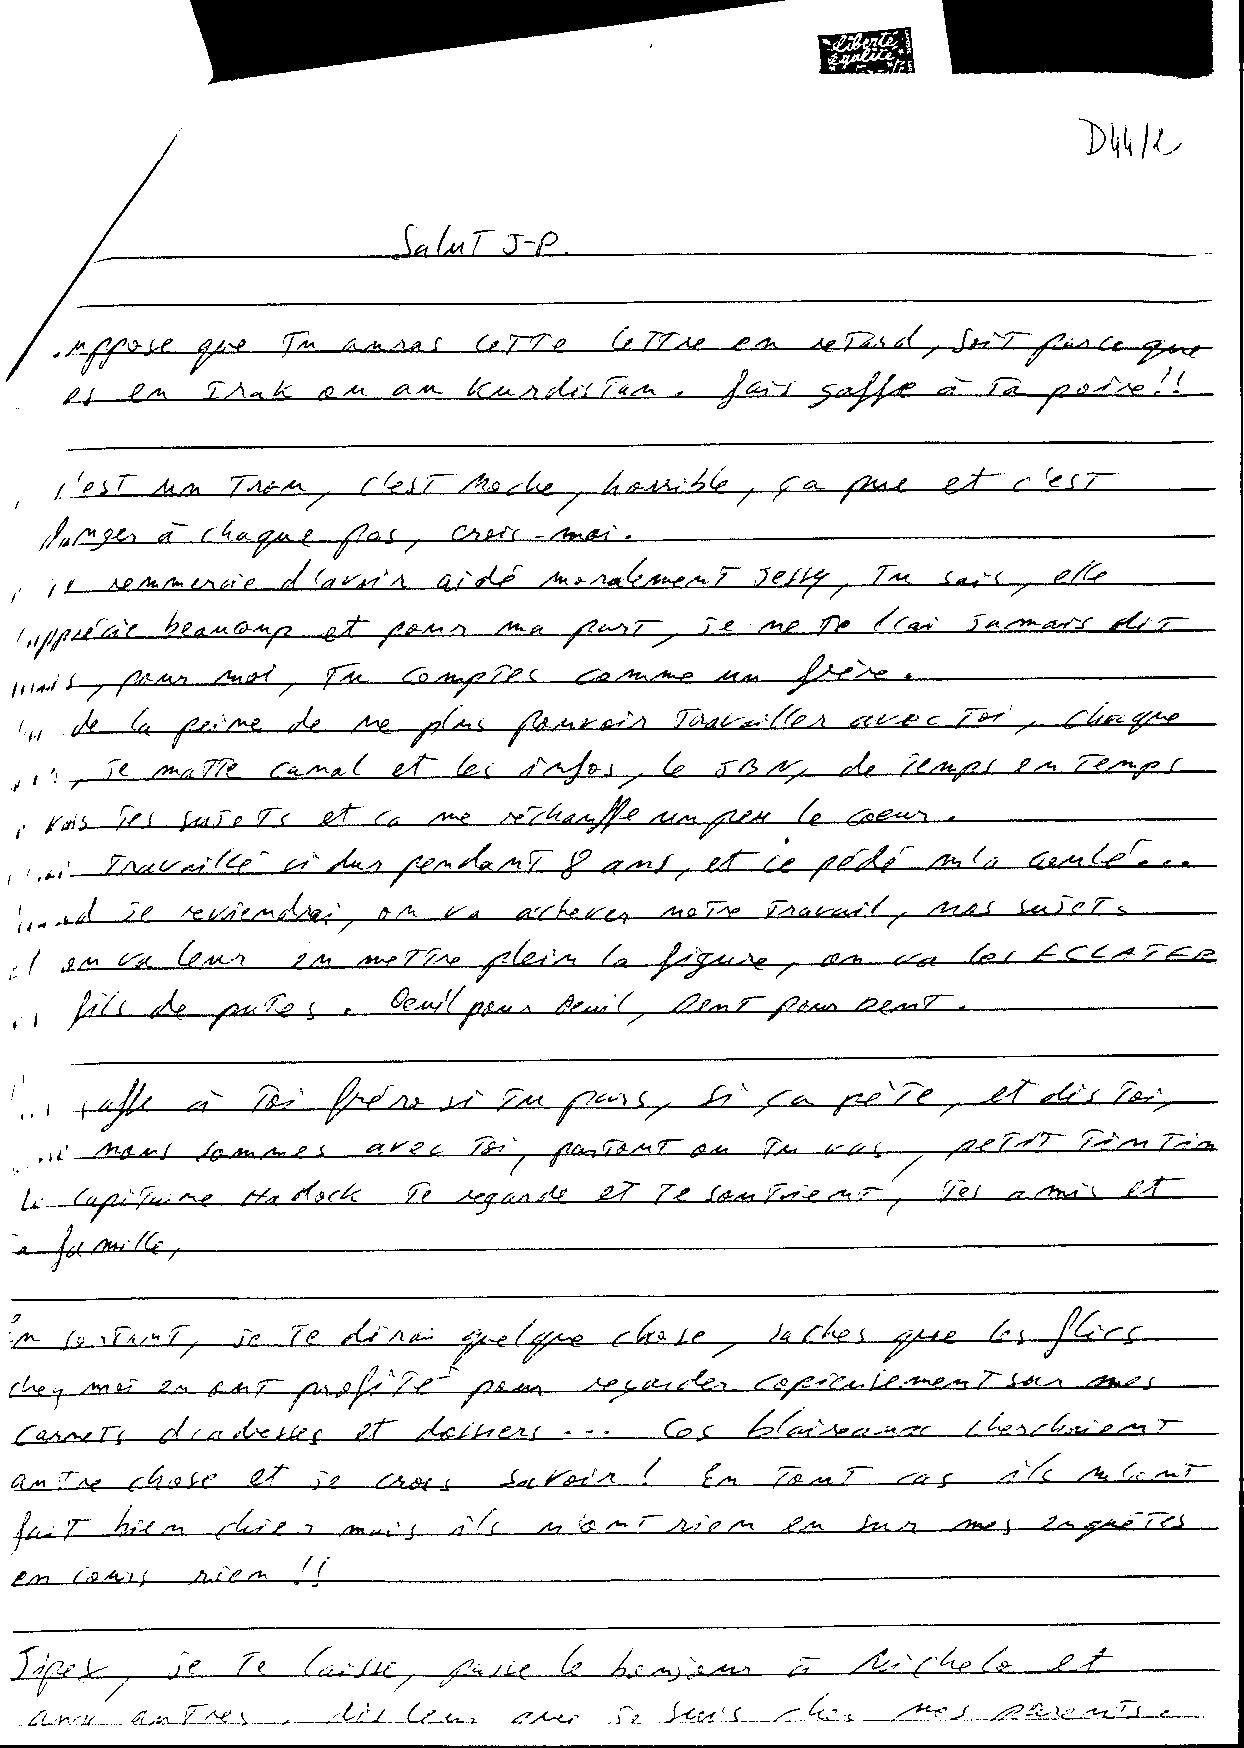 liberté
égalité
D44/2
Salut J-P.
uppose que tu auras cette lettre en retard, soit parce que
es en Irak ou au Kurdistan. fais gaffe à ta poire!!
c'est un trou, c'est moche, horrible, ça pue et c'est
danger à chaque pas, crois-moi.
remmercie d'avoir aidé moralement Jessy, tu sais, elle
apprécie beaucoup et pour ma part, je ne te l'ai jamais dit
mais, pour moi, tu comptes comme un frère.
de la peine de ne plus pouvoir travailler avec toi, chaque
, je matte canal et les infos, le JBN, de temps en temps
vois tes sujets et ça me réchauffe un peu le coeur.
travaillé si dur pendant 8 ans, et ce pédé m'a coulé...
je reviendrai, on va achever notre travail, nos sujets
on va leur en mettre plein la figure, on va les ECLATER
fils de putes. Oeuil pour Oeuil, Dent pour Dent.
gaffe à toi fréro si tu pars, si ça pète, et dis toi,
nous sommes avec toi, partout ou tu vas, petit Tintin
Le capitaine Hadock te regarde et te soutient, tes amis et
ta famille,
En sortant, je te dirai quelque chose, saches que les flics
chez moi en ont profité pour regarder copieusement sur mes
carnets d'adresses et dossiers... Ces blaireaux cherchaient
autre chose et je crois savoir! En tout cas ils m'ont
fait bien chier mais ils n'ont rien eu sur mes enquêtes
en cours rien!!
Jipex, je te laisse, passe le bonjour à Michelo et
aux autres, dis leur que je suis chez mes parents.